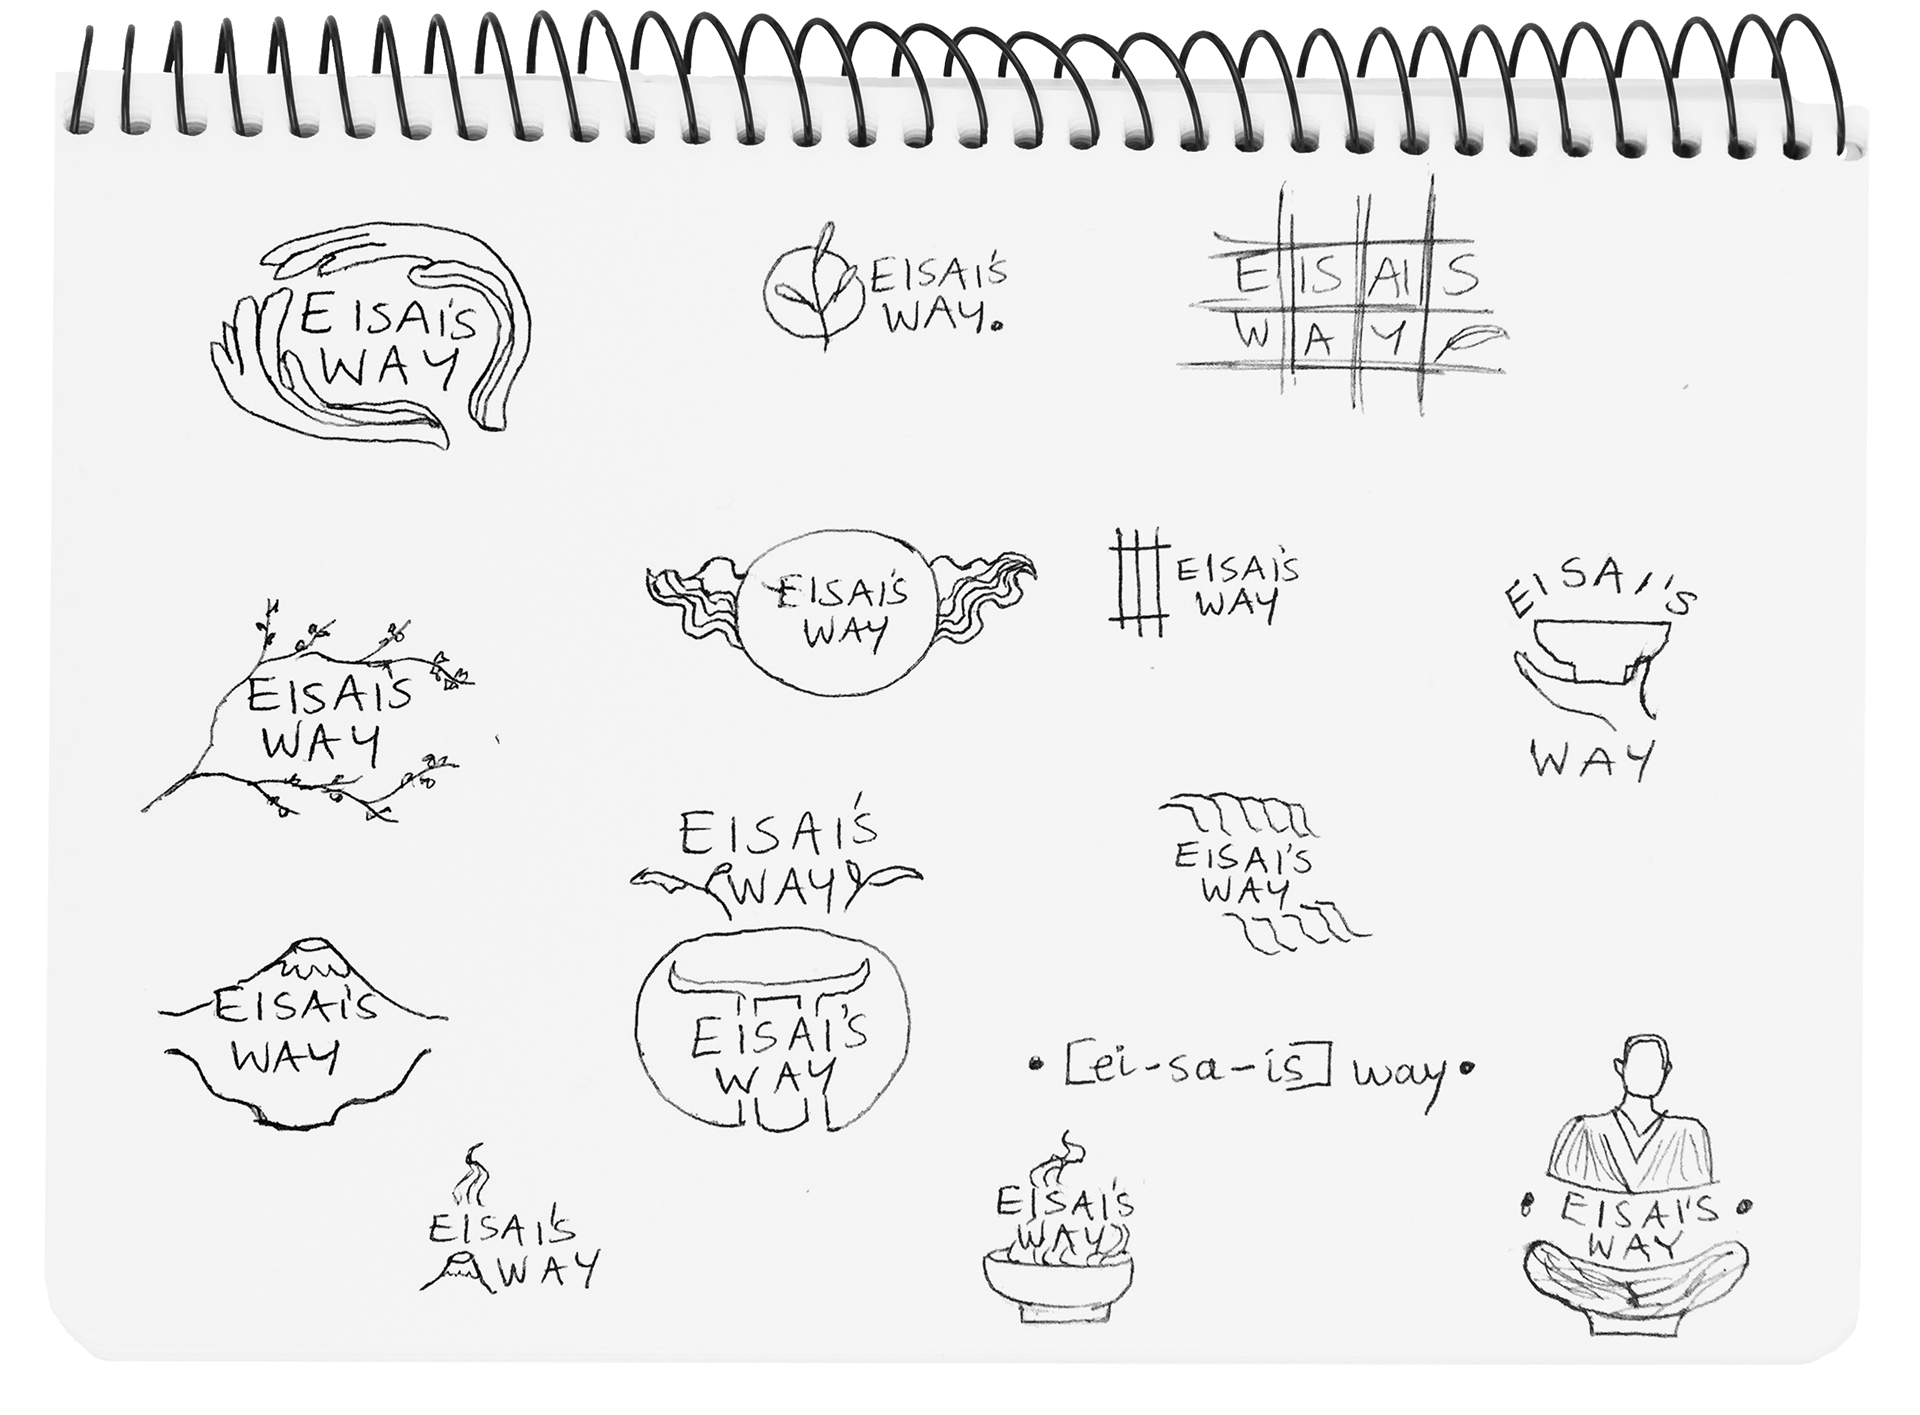 EISAI'S
WAY
EISAI'S
WAY.
E IS AI S
W A Y
EISAI'S
WAY
EISAI'S
WAY
EISAI'S
WAY
EISAI'S
WAY
EISAI'S
WAY
EISAI'S
WAY
EISAI'S
WAY
EISAI'S
WAY
• [ei-sa-is] way •
EISAI'S
WAY
EISAI'S
WAY
• EISAI'S •
WAY